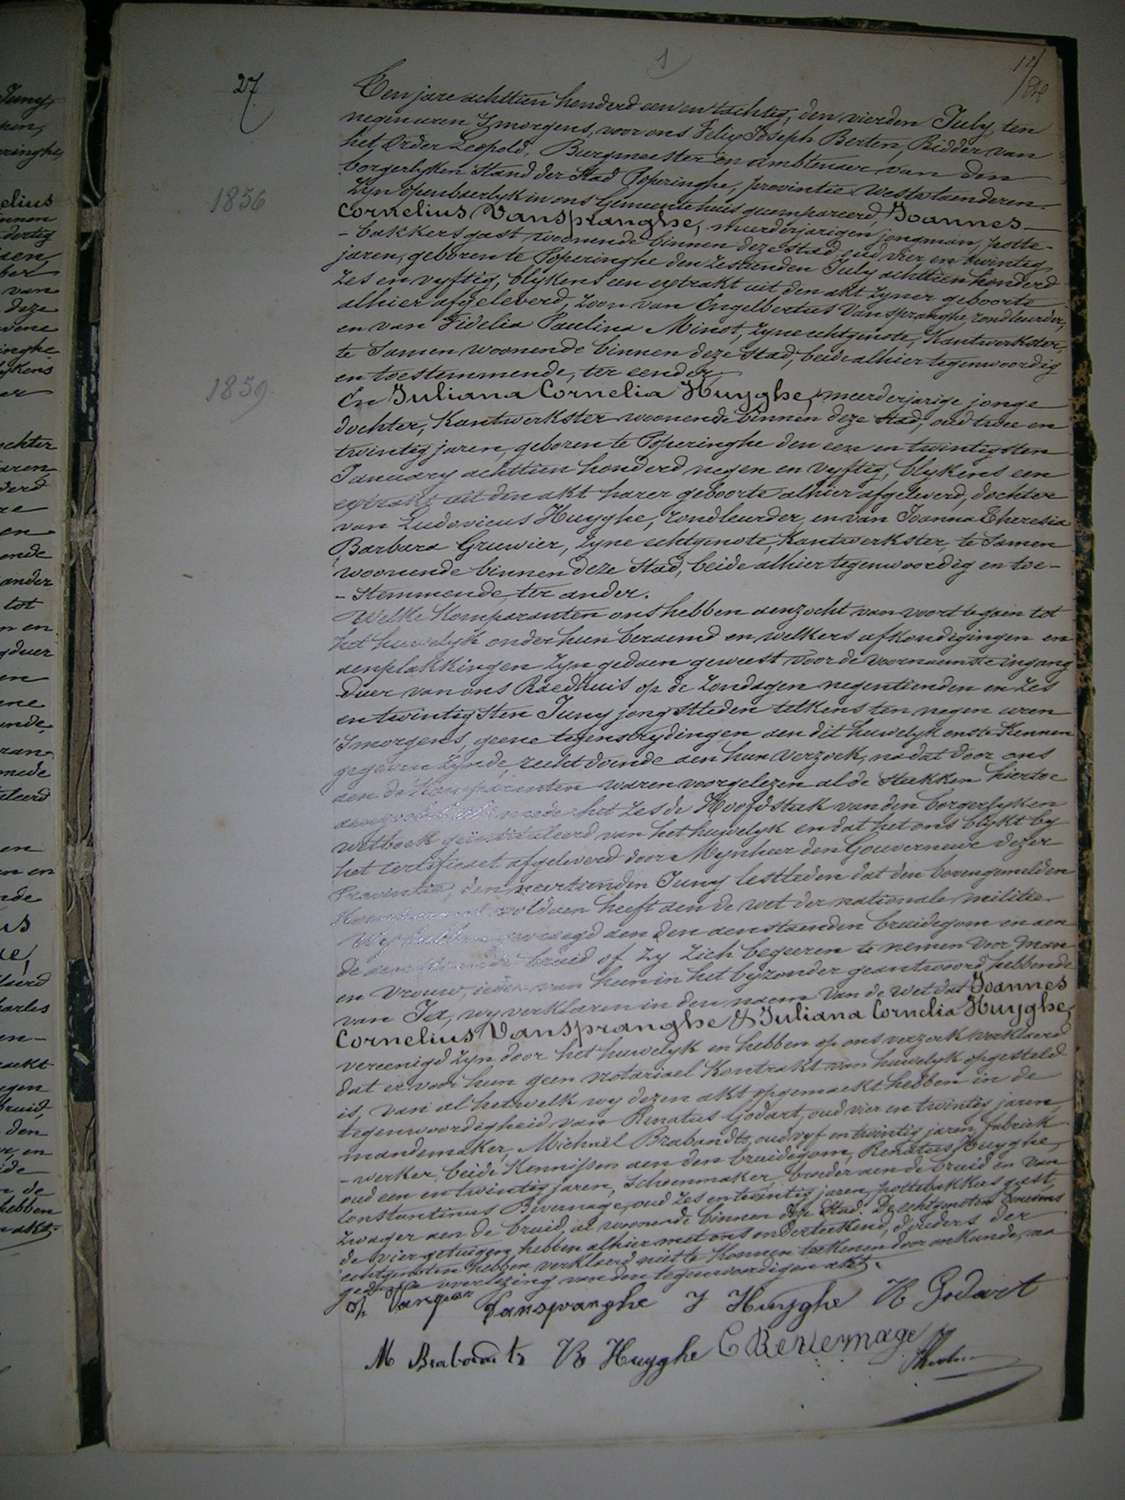 27
1
1856
1859
Ten jare achttien honderd een en tachtig, den vierden July, ten
negen uren 's morgens, voor ons Felix Joseph Berten, Ridder van
het Order Leopold, Burgmeester en ambtenaer van den
borgerlyken Stand der Stad Poperinghe, provintie Westvlaenderen
zyn openbaerlyk in ons gemeentehuis gecompareerd, Joannes
Cornelius Vanspranghe, meerderjarigen jongman, potte-
-bakkersgast woonende binnen deze stad oud vier en twintig
jaren, geboren te Poperinghe den zestienden July achttien honderd
zes en vyftig, blykens een extrakt uit den akt zyner geboorte
alhier afgeleverd, zoon van Engelbertus Vanspranghe, rondleurder,
en van Fidelia Paulina Minst, zyne echtgenote, Kantwerkster,
te Samen woonende binnen deze Stad, beide alhier tegenwoordig
en toestemmende, ter eender
En Juliana Cornelia Huyghe, meerderjarige jonge
dochter, Kantwerkster woonende binnen deze Stad, oud twee en
twintig jaren, geboren te Poperinghe den een en twintigsten
January achttien honderd negen en vyftig, blykens een
extrakt uit den akt harer geboorte alhier afgeleverd, dochter
van Ludovicus Huyghe, rondleurder, en van Joanna Theresia
Barbara Gruwier, zyne echtgenote, Kantwerkster, te Samen
woonende binnen deze Stad, beide alhier tegenwoordig en toe-
-stemmende, ter ander.
Welke Komparanten ons hebben aenzocht van voort te gaen tot
het huwelyk onder hun beraemd en welkers afkondigingen en
aenplakkingen zyn gedaen geweest voor de voornaemste ingang
duer van ons Raedhuis op de Zondagen negentienden en zes
en twintigsten Juny jongstleden telkens ten negen uren
's morgens, geene tegenstrydingen aen dit huwelyk ons te Kennen
gegeven zynde, recht doende aen hun verzoek, na dat door ons
aen de Komparanten waren voorgelezen al de stukken hiertoe
mede het zesde Hoofdstuk van den borgerlyken
wetboek geintituleerd van het huwelyk en dat het ons blykt by
het certificaet afgeleverd door Mynheer den Gouverneur dezer
Provintie, den veertienden Juny lestleden dat den bovengemelden
Komparant voldaen heeft aen de wet der nationale militie
Wy hebben gevraegd aen den aenstaenden bruidegom en aen
de aenstaende bruid of zy zich begeeren te nemen voor man
en vrouw, ieder van hun in het byzonder geantwoord hebbende
van Ja, wy verklaren in den naem van de wet dat Joannes
Cornelius Vanspranghe & Juliana Cornelia Huyghe,
vereenigd zyn door het huwelyk en hebben op ons verzoek verklaerd
dat er voor hun geen notariael Kontrakt van huwelyk opgesteld
is, van al hetwelk wy dezen akt opgemaekt hebben in de
tegenwoordigheid van Renatus Godart, oud vier en twintig jaren,
mandemaker, Michaël Brabandts, oud vyf en twintig jaren, fabriek
-werker, beide Kennissen aen den bruidegom, Renatus Huyghe,
oud een en twintig jaren, Schoenmaker, broeder aen de bruid en van
Constantinus Bevernage, oud zes en twintig jaren, pottebakkersgast,
zwager aen de bruid, al woonende binnen deze Stad. De echtgenoten
de vier getuigen hebben alhier met ons onderteekend, d'ouders der
echtgenoten hebben verklaerd niet te Konnen teekenen door onkunde, na
gedane voorlezing van den tegenwoordigen akt.
Vanspranghe J Huyghe R Godart
M Brabandts R Huyghe C Bevernage